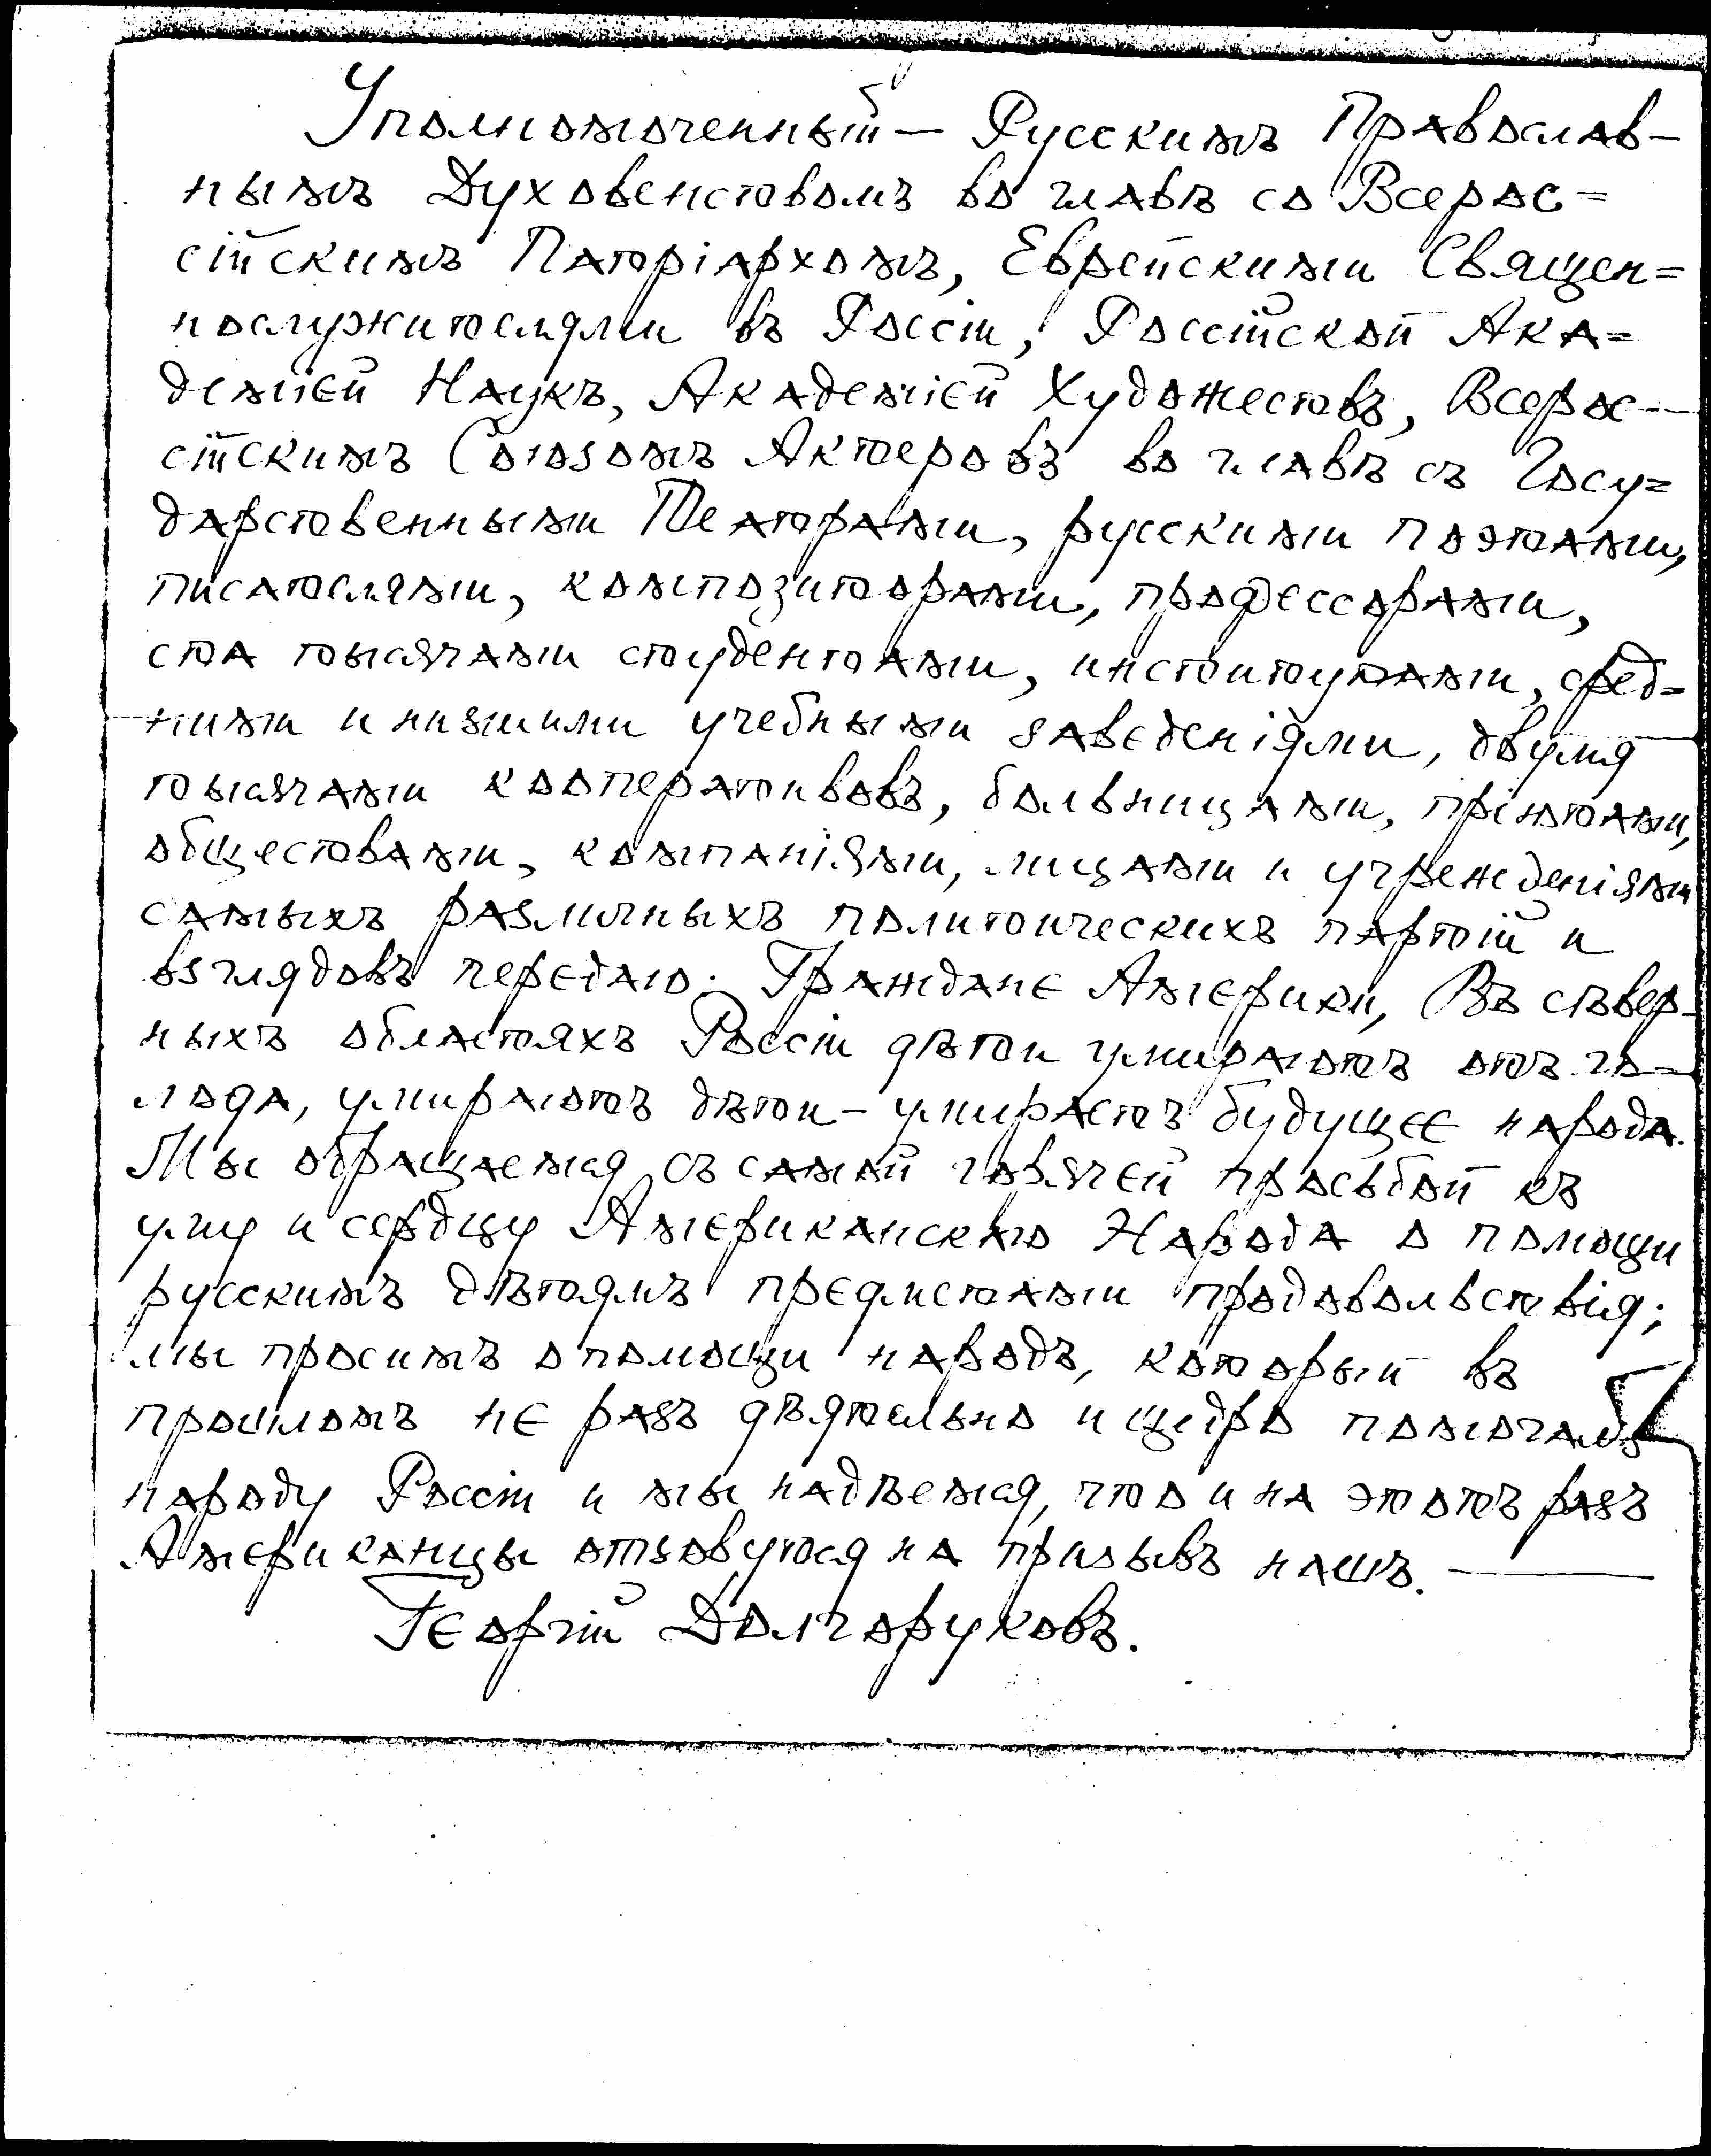 Уполномоченный — Русскимъ Православ-
нымъ Духовенствомъ во главѣ со Всерос=
сійскимъ Патріархомъ, Еврейскими Священ=
нослужителями въ Россіи, Россійской Ака=
деміей Наукъ, Академіей Художествъ, Всерос-
сійскимъ Союзомъ Актеровъ во главѣ съ Госу=
дарственными Театрами, русскими поэтами,
писателями, композиторами, профессорами,
ста тысячами студентами, институтами, сред=
ними и низшими учебными заведеніями, двумя
тысячами кооперативовъ, больницами, пріютами,
обществами, компаніями, лицами и учрежденіями
самыхъ различныхъ политическихъ партій и
взглядовъ передаю: Граждане Америки, Въ сѣвер-
ныхъ областяхъ Россіи дѣти умираютъ отъ го-
лода, умираютъ дѣти - умираетъ будущее народа.
Мы обращаемся съ самой горячей просьбой къ
уму и сердцу Американскаго Народа о помощи
русскимъ дѣтямъ предметами продовольствія;
мы просимъ о помощи народъ, который въ
прошломъ не разъ дѣятельно и щедро помогалъ
народу Россіи и мы надѣемся, что и на этотъ разъ
Американцы отзовутся на призывъ нашъ. —
Георгій Долгоруковъ.